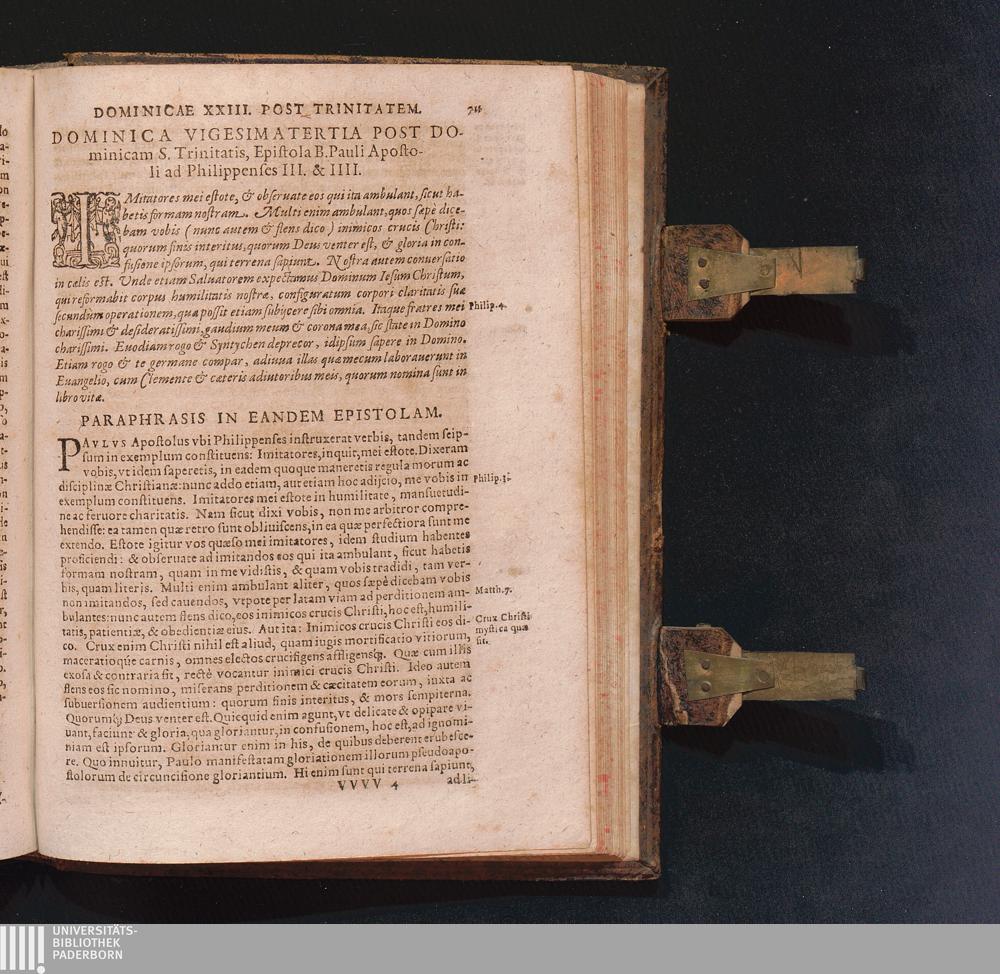 DOMINICAE XXIII. POST TRINITATEM.
DOMINICA VIGESIMATERTIA POST DO-
minicam S. Trinitatis, Epiſtola B. Pauli Apoſto-
li ad Philippenſes III. & IIII.
IMitatores mei eſtote, & obſeruate eos qui ita ambulant, ſicut ha-
betis formam noſtram. Multi enim ambulant, quos ſæpè dice-
bam vobis (nunc autem & flens dico) inimicos crucis Chriſti:
quorum finis interitus, quorum Deus venter eſt, & gloria in con-
fuſione ipſorum, qui terrena ſapiunt. Noſtra autem conuerſatio
in cælis eſt. Vnde etiam Saluatorem expectamus Dominum Ieſum Chriſtum,
qui reformabit corpus humilitatis noſtræ, configuratum corpori claritatis ſuæ
ſecundùm operationem, qua poſſit etiam ſubijcere ſibi omnia. Itaque fratres mei
Philip. 4.
chariſſimi & deſideratiſſimi, gaudium meum & corona mea, ſic ſtate in Domino
chariſſimi. Euodiam rogo & Syntychen deprecor, idipſum ſapere in Domino.
Etiam rogo & te germane compar, adiuua illas quæ mecum laborauerunt in
Euangelio, cum Clemente & cæteris adiutoribus meis, quorum nomina ſunt in
libro vitæ.
PARAPHRASIS IN EANDEM EPISTOLAM.
PAVLVS Apoſtolus vbi Philippenſes inſtruxerat verbis, tandem ſeip-
ſum in exemplum conſtituens: Imitatores, inquit, mei eſtote. Dixeram
vobis, vt idem ſaperetis, in eadem quoque maneretis regula morum ac
diſciplinæ Chriſtianæ: nunc addo etiam, aut etiam hoc adijcio, me vobis in
Philip. 3.
exemplum conſtituens. Imitatores mei eſtote in humilitate, manſuetudi-
ne ac feruore charitatis. Nam ſicut dixi vobis, non me arbitror compre-
hendiſſe: ea tamen quæ retro ſunt obliuiſcens, in ea quæ perfectiora ſunt me
extendo. Eſtote igitur vos quæſo mei imitatores, idem ſtudium habentes
proficiendi: & obſeruate ad imitandos eos qui ita ambulant, ſicut habetis
formam noſtram, quam in me vidiſtis, & quam vobis tradidi, tam ver-
bis, quam literis. Multi enim ambulant aliter, quos ſæpè dicebam vobis
non imitandos, ſed cauendos, vtpote per latam viam ad perditionem am-
Matth. 7.
bulantes: nunc autem flens dico, eos inimicos crucis Chriſti, hoc eſt, humili-
tatis, patientiæ, & obedientiæ eius. Aut ita: Inimicos crucis Chriſti eos di-
Crux Chriſti
myſtica quæ
ſit.
co. Crux enim Chriſti nihil eſt aliud, quam iugis mortificatio vitiorum,
maceratioque carnis, omnes electos crucifigens affligensq́. Quæ cum illis
exoſa & contraria ſit, rectè vocantur inimici crucis Chriſti. Ideo autem
flens eos ſic nomino, miſerans perditionem & cæcitatem eorum, iuxta ac
ſubuerſionem audientium: quorum finis interitus, & mors ſempiterna.
Quorumq́ Deus venter eſt. Quicquid enim agunt, vt delicate & opipare vi-
uant, faciunt & gloria, qua gloriantur, in confuſionem, hoc eſt, ad ignomi-
niam eſt ipſorum. Gloriantur enim in his, de quibus deberent erubeſce-
re. Quo innuitur, Paulo manifeſtatam gloriationem illorum pſeudoapo-
ſtolorum de circunciſione gloriantium. Hi enim ſunt qui terrena ſapiunt,
VVVV 4
ad li-
UNIVERSITÄTS-
BIBLIOTHEK
PADERBORN